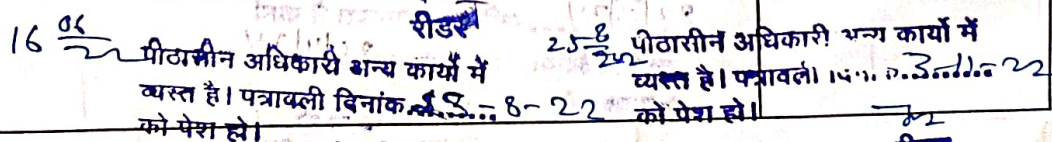 रीडर
16 06/22 पीठासीन अधिकारी अन्य कार्यो में
व्यस्त है। पत्रावली दिनांक 8-22
को पेश हो।
25 8/22 पीठासीन अधिकारी अन्य कार्यो में
व्यस्त है। पत्रावली 3-11-22
को पेश हो।